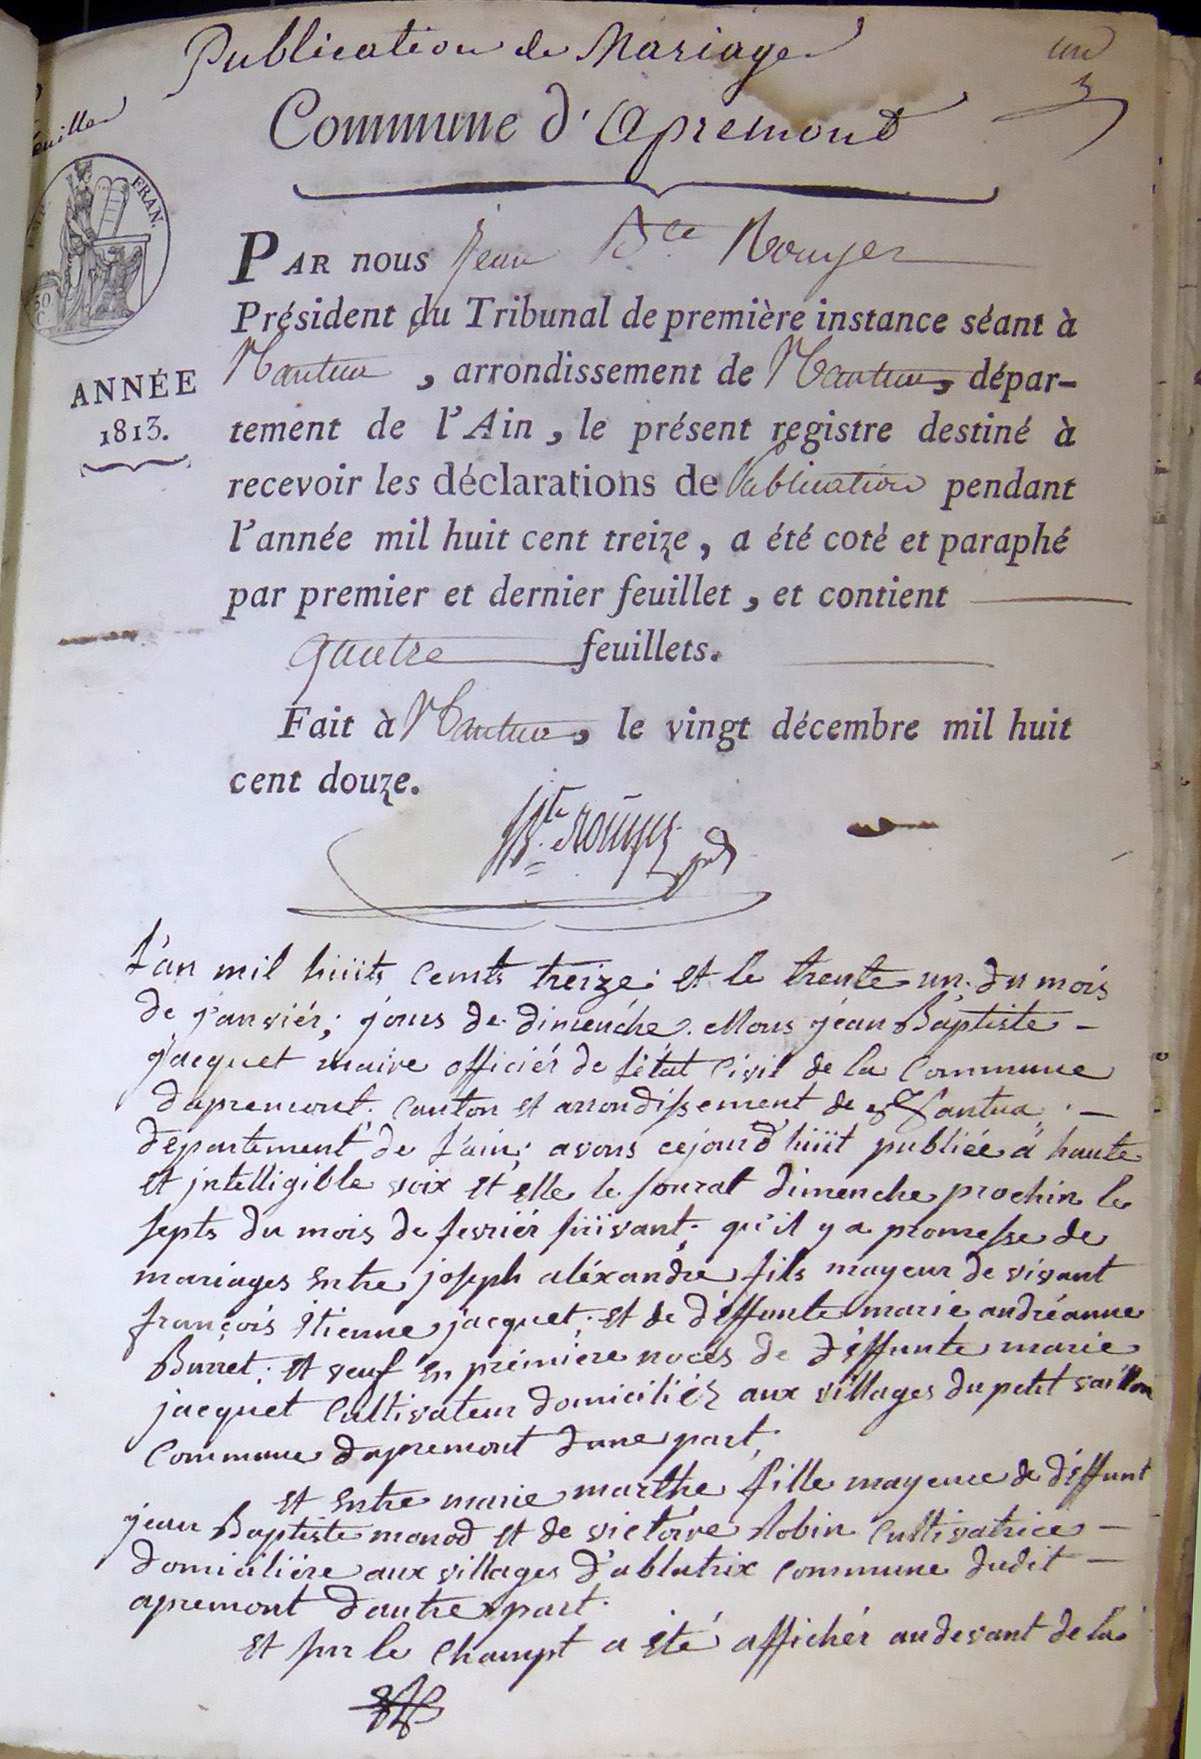 Publication de Mariage
un
feuilles
Commune d'Apremont
FRAN.
PAR nous Jean Bte Rouyer
Président du Tribunal de première instance séant à
Nantua, arrondissement de Nantua, dépar-
ANNÉE
1813.
tement de l'Ain, le présent registre destiné à
recevoir les déclarations de Publication pendant
l'année mil huit cent treize, a été coté et paraphé
par premier et dernier feuillet, et contient
quatre feuillets.
Fait à Nantua, le vingt décembre mil huit
cent douze.
Bte Rouyer
L'an mil huits cents treize; et le trente un du mois
de janviér; jours de dimenche. Nous jéan Baptiste -
jacquet maire officiér de l'état Civil de la Commune
dapremont. Canton et arrondissement de Nantua. -
département de l'ain; avons cejourd'huit publiée a haute
et jntelligible voix et elle le sourat dimenche prochin le
septs du mois de fevriér suivant. qu'il y a promesse de
mariages entre joseph aléxandre fils mayeur de vivant
françois étienne jacquet. et de déffunte marie andréanne
Burret; et veuf en prémière nocés de déffunte marie
jacquet Cultivateur domiciliéz aux villages du petit vaillon
Commune dapremont dune part;
et entre marie marthe fille mayeure de déffunt
jean Baptiste monod et de victoire Robin Cultivatrice -
domiciliére aux villages d'ablatrix Commune dudit -
apremont dautre part.
et sur le Champt a été affichér audevant de la